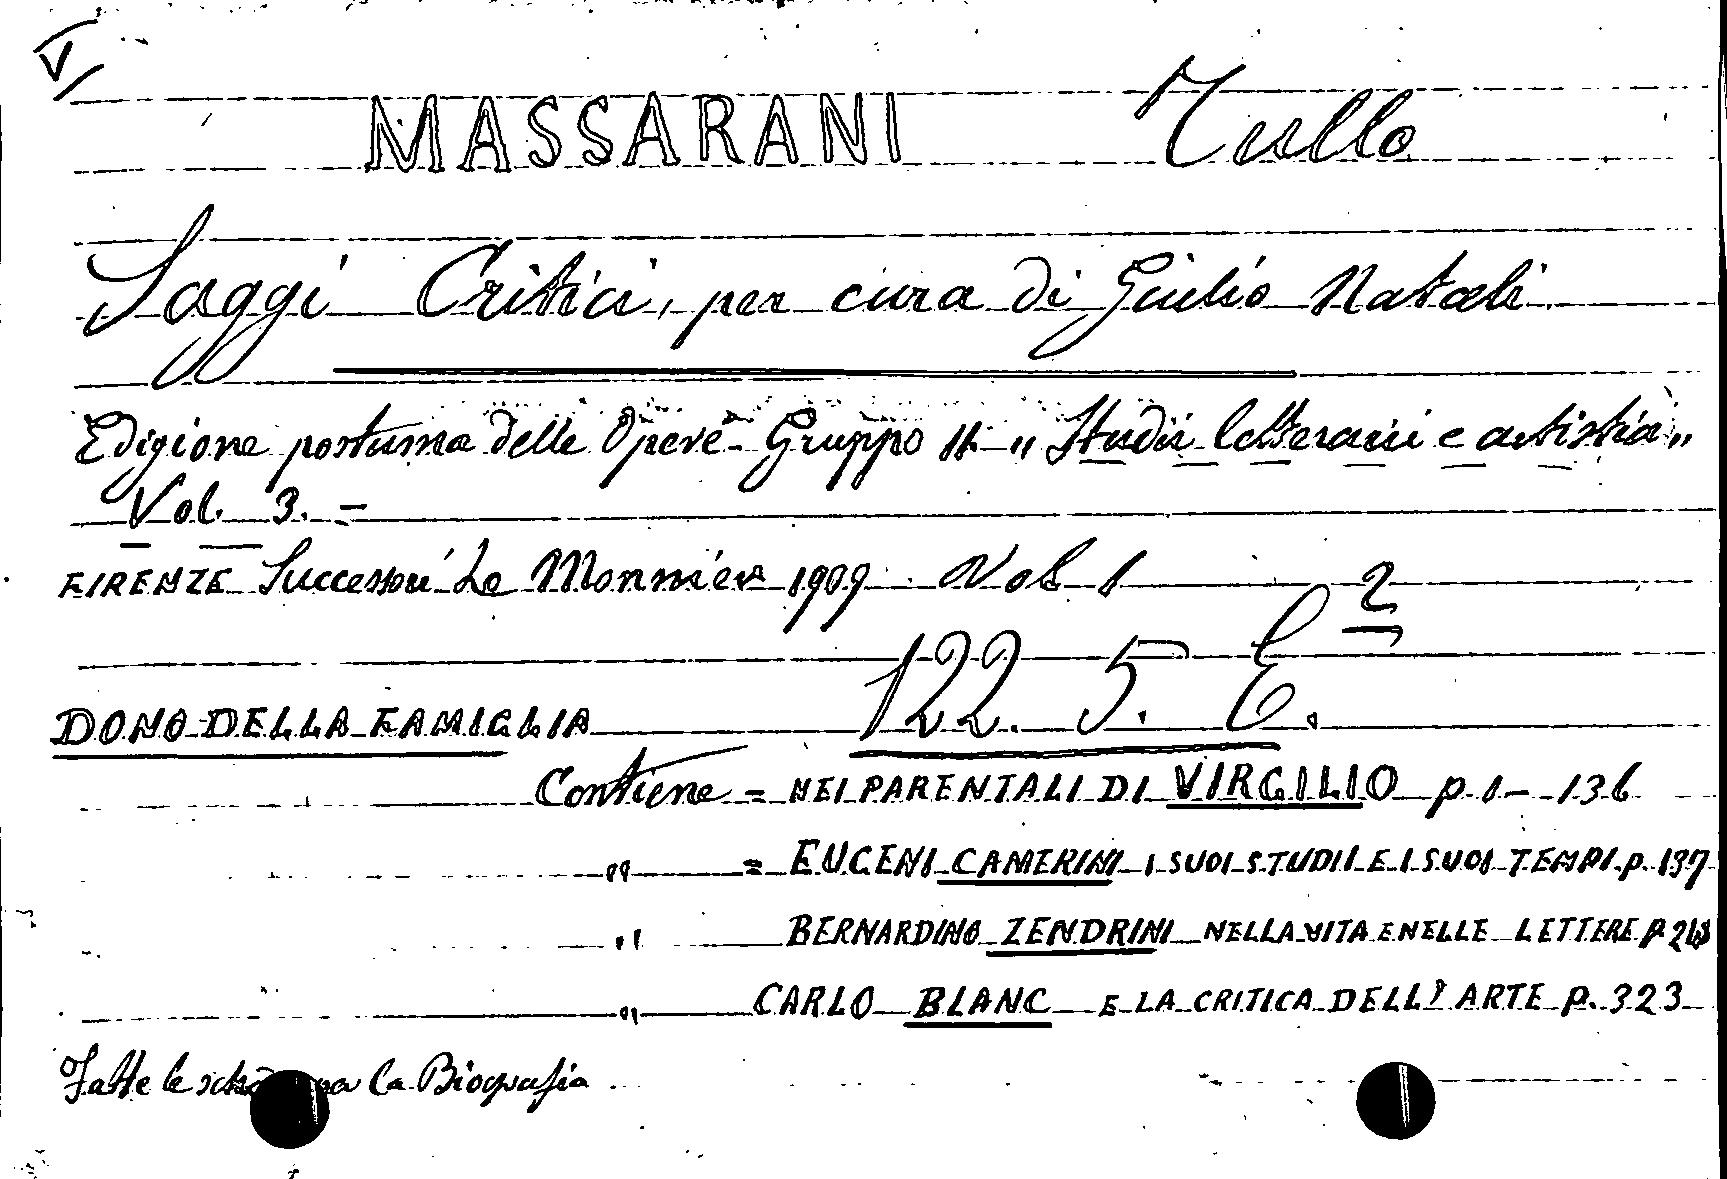 V
MASSARANI Tullo
Saggi Critici, per cura di Giulio Natali.
Edizione postuma delle Opere - Gruppo II - „ Studii letterarii e artistici „
Vol. 3. =
FIRENZE Successori Le Monnier 1909. Vol. 1
122. 5. E. 2
DONO DELLA FAMIGLIA
Contiene = NEI PARENTALI DI VIRGILIO p. 1 - 136
„ = EUGENI CAMERINI I SUOI STUDII E I SUOI TEMPI. p. 137
„ BERNARDINO ZENDRINI NELLA VITA E NELLE LETTERE P.
„ CARLO BLANC E LA CRITICA DELL' ARTE P. 323
Fatte le la Biografia